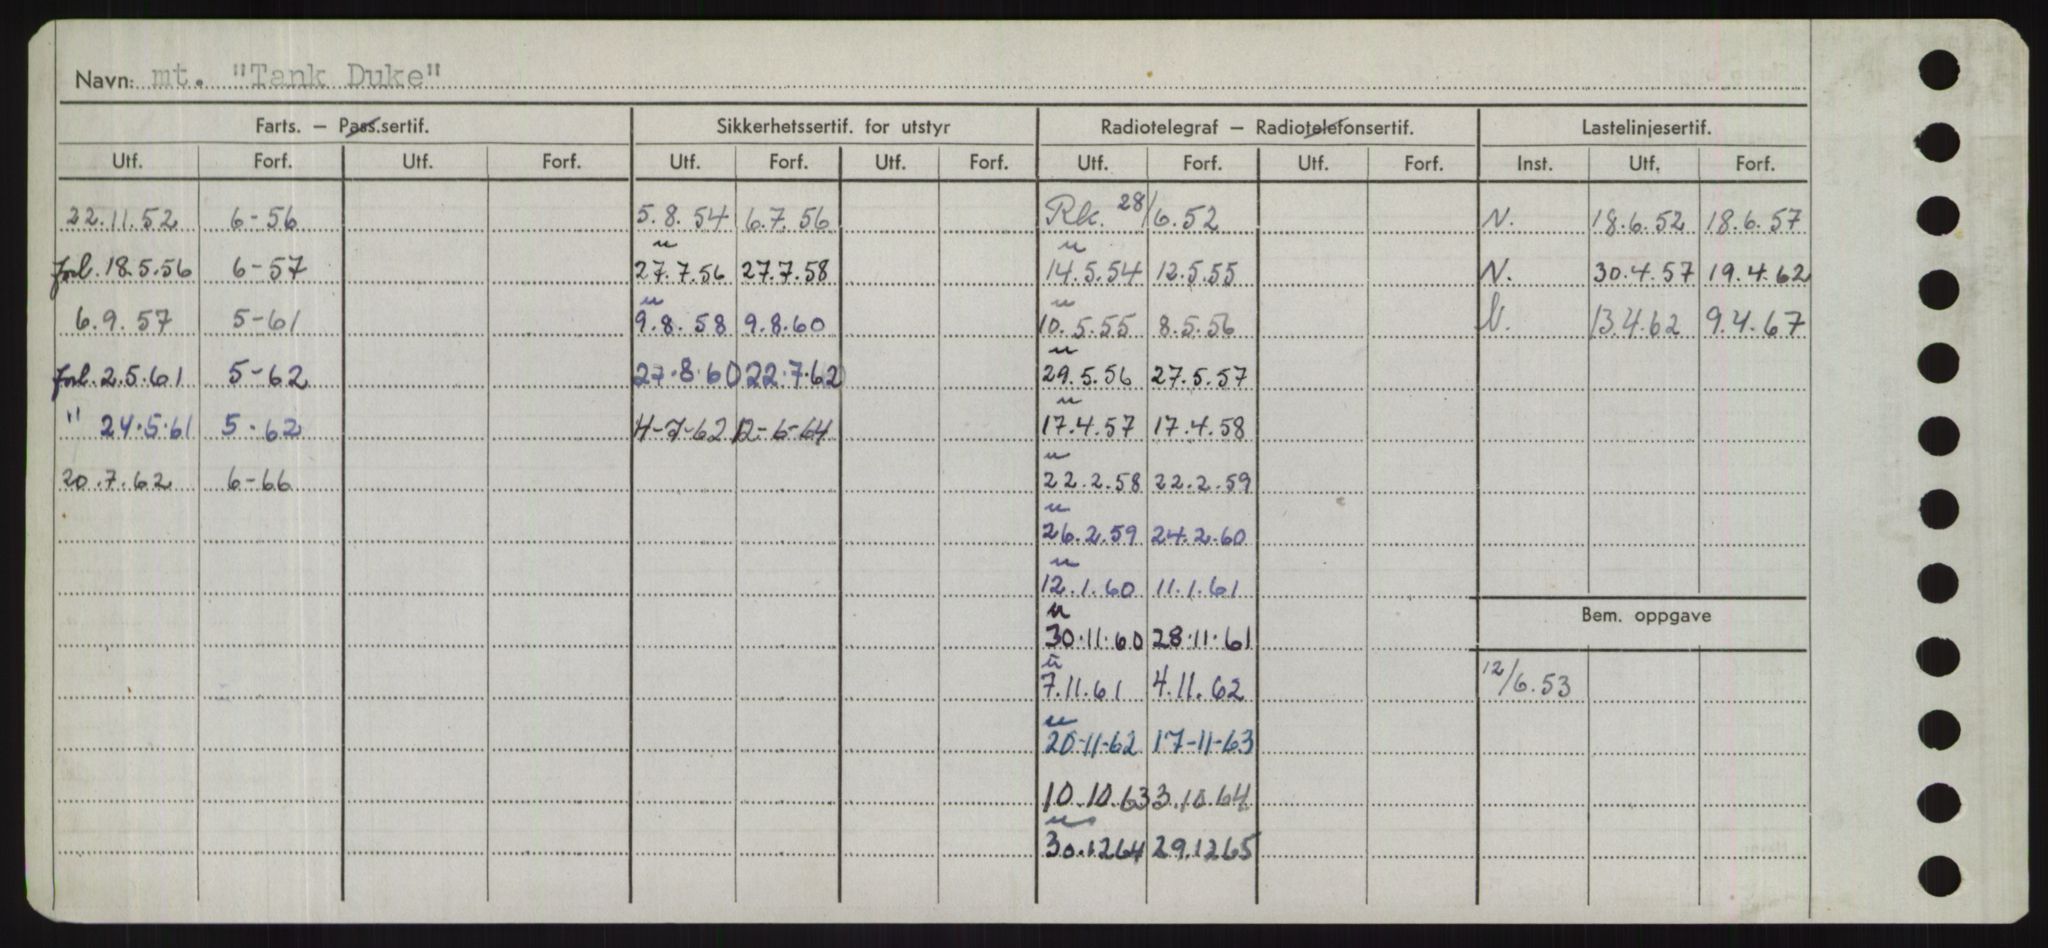 Navn: mt. "Tank Duke"
Farts. – Pass.sertif. Sikkerhetssertif. for utstyr Radiotelegraf – Radiotelefonsertif. Lastelinjesertif.
Utf. Forf. Utf. Forf. Utf. Forf. Utf. Forf. Utf. Forf. Utf. Forf. Inst. Utf. Forf.
22.11.52 6-56 5.8.54 6.7.56 Rk. 28/6.52 N. 18.6.52 18.6.57
u u
forl. 18.5.56 6-57 27.7.56 27.7.58 14.5.54 12.5.55 N. 30.4.57 19.4.62
u u
6.9.57 5-61 9.8.58 9.8.60 10.5.55 8.5.56 N. 13.4.62 9.4.67
u
forl. 2.5.61 5-62 27.8.60 22.7.62 29.5.56 27.5.57
u
" 24.5.61 5-62 4-7-62 12-6-64 17.4.57 17.4.58
u
20.7.62 6-66 22.2.58 22.2.59
u
26.2.59 24.2.60
u
12.1.60 11.1.61
u Bem. oppgave
30.11.60 28.11.61
u
7.11.61 4.11.62 12/6.53
u
20-11-62 17-11-63
10.10.63 3.10.64
u
30.1264 29.1265